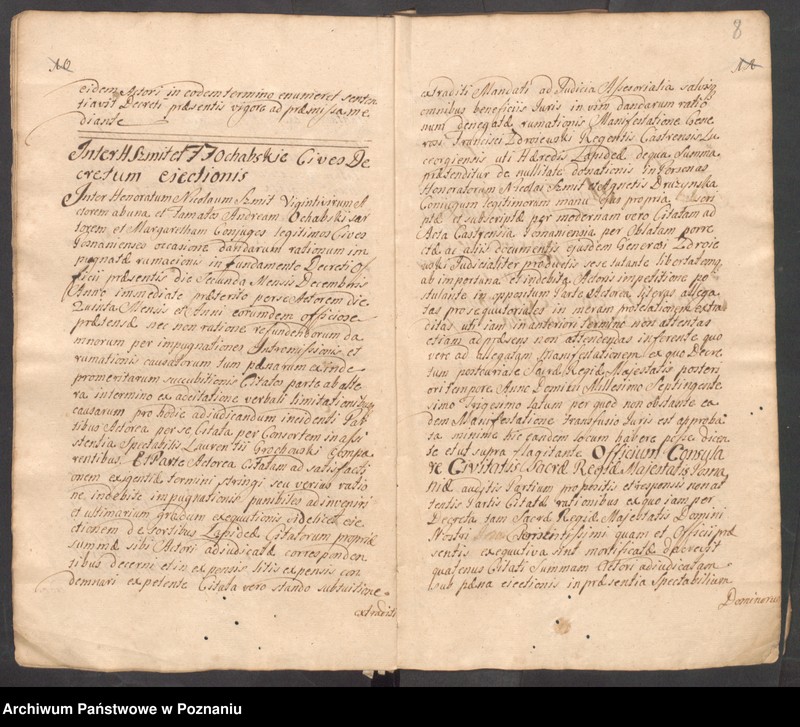 10
eidem Actori in eodem termino enumeret senten
tiavit Decreti præsentis vigore ad præmissa me
diante
Inter H. Szmit et FF Ochabskie Cives De
cretum eiectionis
Inter Honoratum Nicolaum Szmit Vigintivirum A
ctorem ab una et famatos Andream Ochabski sar
torem et Margaretham Conjuges legitimos Cives
Posnanienses occasione dandarum rationum im
pugnatæ rumationis in fundamento Decreti Of
ficii præsentis die Secunda Mensis Decembris
Anno immediate præterito per se Actorem die
Quinta Mensis et Anni eorundem officiose
prætensæ nec non ratione refundendorum da
mnorum per impugnationes Intromissionis et
rumationis causatorum tum pænarum exinde
promeritarum succubitionis Citatos parte ab alte
ra in termino ex accitatione verbali limitationibus
causarum pro hodie adjudicandum incidenti Par
tibus Actorea per se, Citata per Consortem in assi
stentia Spectabilis Laurentii Grochowski compa
rentibus. Et Parte Actorea Citatam ad satisfacti
onem exigentiæ termini stringi seu verius ratio
ne indebite impugnationis punibiles adinveniri
et ultimarium gradum exequutionis videlicet eie
ctionem de sortibus Lapideæ Citatorum propriæ
summæ sibi Actori adiudicatæ corresponden
tibus decerni et in expensis litis expensis con
demnari expetente Citata vero stando sub tuitione
extraditi
8
11
extraditi Mandati ad Judicia Assessorialia salvisq
omnibus beneficiis Juris in vim dandarum ratio
num denegatæ rumationis Manifestatione Gene
rosi Francisci Zdroiewski Regentis Castrensis
uti Hæredis Lapideæ de qua summa
prætenditur de nullitate dotnationis in personas
Honoratorum Nicolai Szmit et Agnetis Druzynska
Conjugum legitimorum manu sua propria scri
ptæ et subscriptæ per modernam vero Citatam ad
Acta Castrensia Posnaniensia per Oblatam porre
ctæ ac aliis documentis ejusdem Generosi Zdroie
wski Judicialiter productis sese tutante libertatemq
ab importuna et indebita Actoris impetitione po
stulante in oppositum Parte Actorea literas allega
tas prosequutoriales in meram protelationem extra
ditas uti iam in anteriori termino non attentas
etiam ad præsens non attendendas inferente quo
vero ad allegatam Manifestationem ex quo Decre
tum postcuriale Sacræ Regiæ Majestatis posteri
ori tempore Anno Domini Millesimo Septingente
simo Trigesimo latum per quod non obstante ea
dem Manifestatione transfusio Juris est approba
ta minime hic eandem locum habere posse dicen
te et ut supra flagitante Officium Consula
re Civitatis Sacræ Regiæ Maiestatis Posna
niæ auditis Partium propositis et responsis non at
tentis Partis Citatæ rationibus ex quo iam per
Decreta tam Sacræ Regiæ Majestatis Domini
Nostri Clementissimi quam et Officii præ
sentis exequutiva sint mortificatæ decrevit
quatenus Citati Summam Actori adiudicatam
sub pæna eiectionis in præsentia Spectabilium
Dominorum
Archiwum Państwowe w Poznaniu